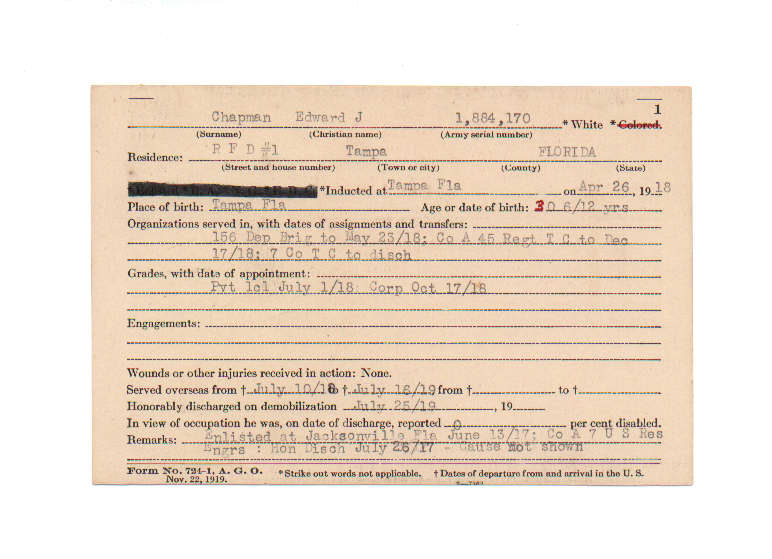 1
Chapman Edward J 1,884,170 * White * Colored.
(Surname) (Christian name) (Army serial number)
Residence: R F D #1 Tampa FLORIDA
(Street and house number) (Town or city) (County) (State)
*Inducted at Tampa Fla on Apr 26, 1918
Place of birth: Tampa Fla Age or date of birth: 30 6/12 yrs
Organizations served in, with dates of assignments and transfers:
156 Dep Brig to May 23/18; Co A 45 Regt T C to Dec
17/18; 7 Co T C to disch
Grades, with date of appointment:
Pvt 1cl July 1/18 Corp Oct 17/18
Engagements:
Wounds or other injuries received in action: None.
Served overseas from † July 10/18 to † July 16/19 from † to †
Honorably discharged on demobilization July 25/19, 19
In view of occupation he was, on date of discharge, reported 0 per cent disabled.
Remarks: Enlisted at Jacksonville Fla June 13/17; Co A 7 U S Res
Engrs : Hon Disch July 26/17 - Cause not shown
Form No. 724-1, A. G. O. *Strike out words not applicable. † Dates of departure from and arrival in the U. S.
Nov. 22, 1919.